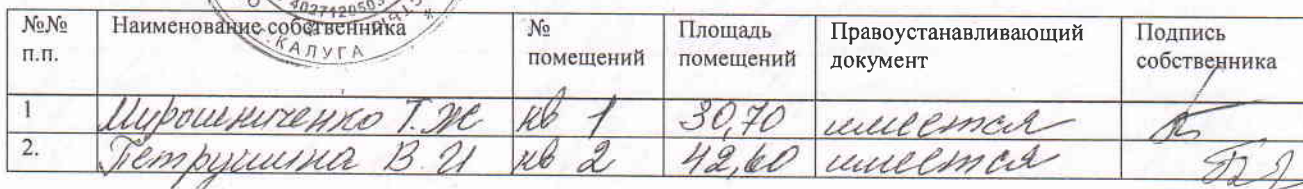 4027120503
КАЛУГА
№№ п.п. Наименование собственника № помещений Площадь помещений Правоустанавливающий документ Подпись собственника
1 Мирошниченко Т. Ж кв 1 30,70 имеется
2. Петрушина В. И кв 2 42,60 имеется